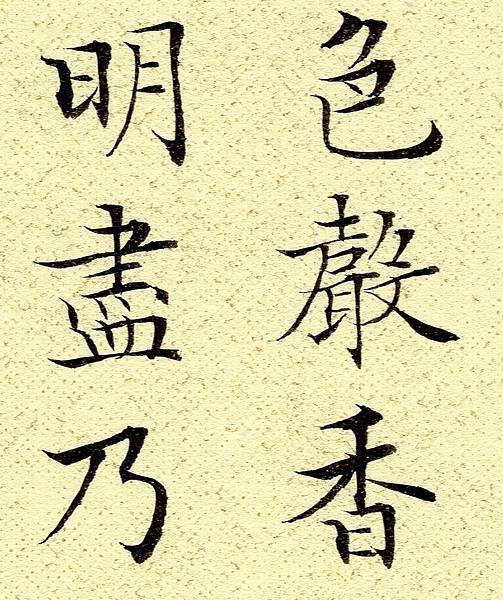 色聲香
明盡乃